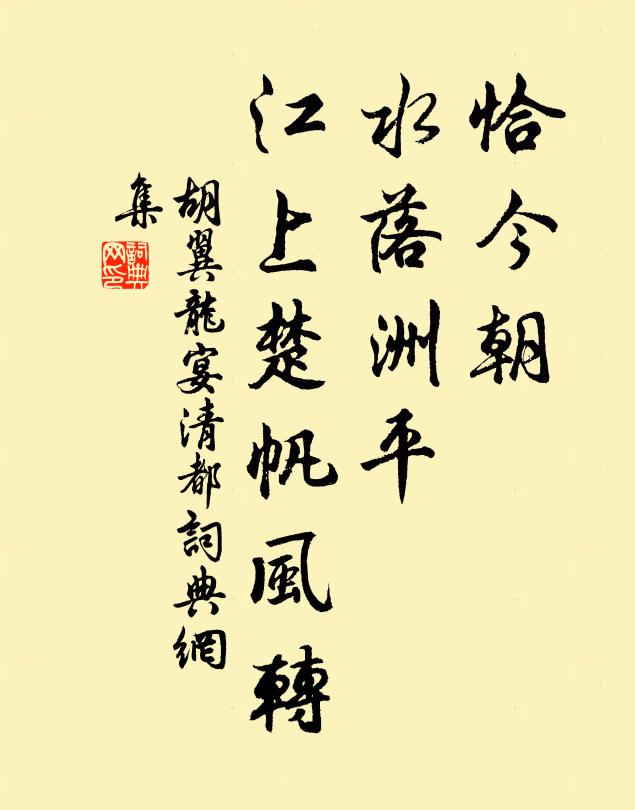 恰今朝
水落洲平
江上楚帆風轉
胡翼龍宴清都詞典網
集
詞典
网印